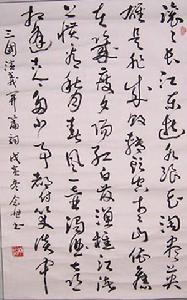 滚滚长江东逝水浪花淘尽英
雄是非成败转头空青山依旧
在几度夕阳红白发渔樵江渚
上惯看秋月春风一壶浊酒喜
相逢古今多少事都付笑谈中
三国演义开篇词